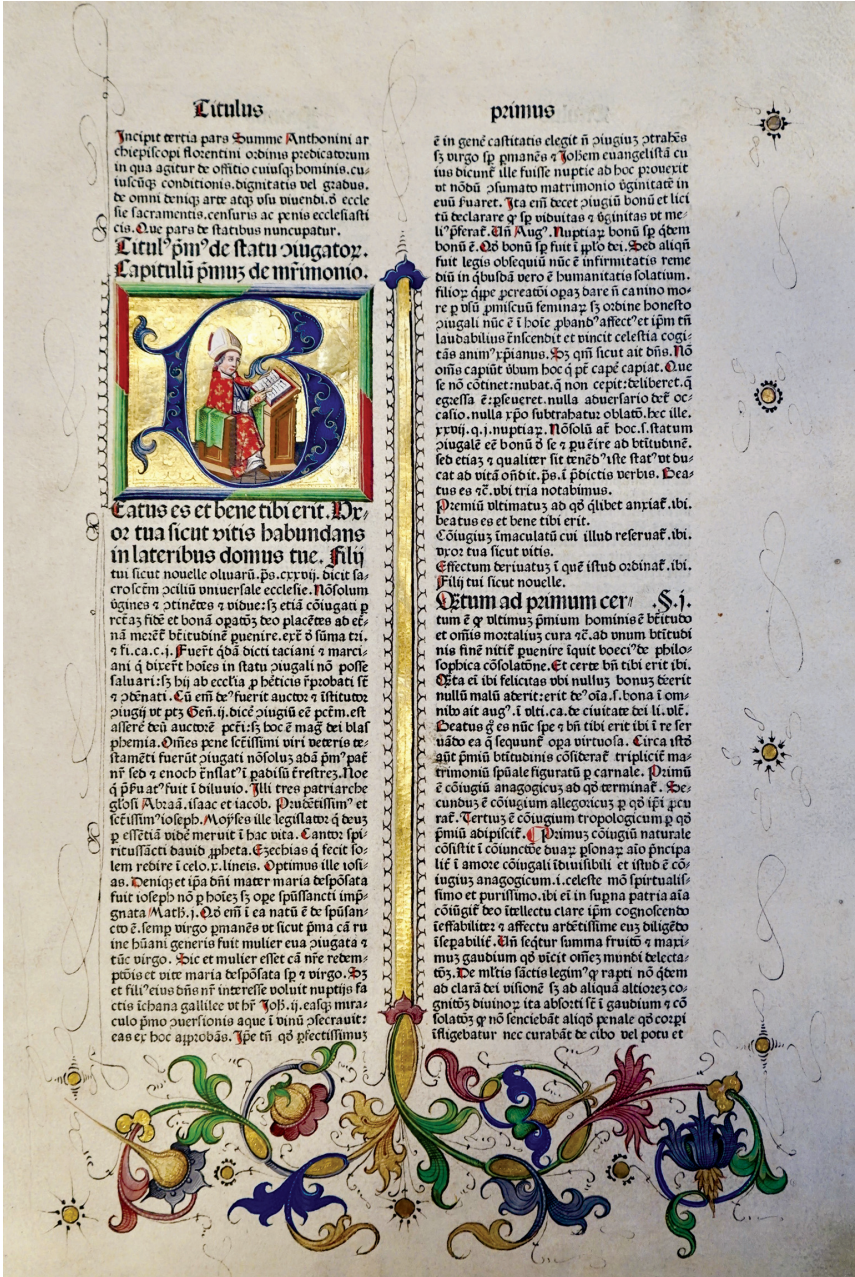 Titulus
Incipit tertia pars Summe Anthonini ar
chiepiscopi florentini ordinis predicatorum
in qua agitur de offitio cuiusqꝫ hominis. cu⸗
iuscūqꝫ conditionis. dignitatis vel gradus.
de omni deniqꝫ arte atqꝫ vsu viuendi. ꝺ̄ eccle
sie sacramentis. censuris ac penis ecclesiasti
cis. Que pars de statibus nuncupatur.
Titulꝰ pͥmꝰ de statu ꝯiugatoꝝ.
Capitulū pͥmuꝫ de mr̄imonio.
B
Eatus es et bene tibi erit. Vx⸗
or tua sicut vitis habundans
in lateribus domus tue. Filij
tui sicut nouelle oluarū. p̄s. cxxvij. dicit sa⸗
crosct̄m ꝯciliū vniuersale ecclesie. Nōsolum
v̄gines ⁊ ꝯtinētes ⁊ vidue: sꝫ etiā cōiugati ꝑ
rc̄taꝫ fidē et bonā oꝑatōꝫ deo placētes ad et̄⸗
nā merēt̄ bt̄itudinē ꝑuenire. ext̄ ꝺ̄ sūma tri.
⁊ fi. ca. c. j. Fuer̄t q̄dā dicti taciani ⁊ marci⸗
ani q̇ dixer̄t hoīes in statu ꝯiugali nō posse
saluari: sꝫ hij ab eccl̄ia ꝓ hēticis r̄probati st̄
⁊ ꝯdēnati. Cū em̄ deꝰ fuerit auctor ⁊ īstitutor
ꝯiugij vt ptꝫ Gen̄. ij. dicē ꝯiugiū eē pct̄m. est
asserē deū auctorē pct̄i: sꝫ hoc ē maḡ dei blas
phemia. Om̄es pene sct̄issimi viri veteris te⸗
stamēti fuerūt ꝯiugati nōsoluꝫ adā pͥmꝰ pat̄
nr̄ sed ⁊ enoch t̄nslatꝰ ī padisū t̄restreꝫ. Noe
q̇ p̄ẜuatꝰ fuit ī diluuio. Illi tres patriarche
gl̄osi Abraā. isaac et iacob. Prudētissimꝰ et
sct̄issimꝰ ioseph. Moyses ille legislator q̇ deuꝫ
ꝑ essētiā vidē meruit ī hac vita. Cantor spi⸗
ritussācti dauid ꝓpheta. Ezechias q̇ fecit so⸗
lem redire ī celo. x. lineis. Optimus ille iosi⸗
as. Deniqꝫ et ip̄a dn̄i mater maria despōsata
fuit ioseph nō ꝑ hoīeꝫ sꝫ ope spūssancti imp̄⸗
gnata Math̄. j. Qd̄ em̄ ī ea natū ē de spūsan⸗
cto ē. semꝑ virgo ꝑmanēs vt sicut pͥma cā ru
ine hūani generis fuit mulier eua ꝯiugata ⁊
tūc virgo. Sic et mulier esset cā nr̄e redem⸗
ptōis et vite maria despōsata sꝑ ⁊ virgo. Sꝫ
et filiꝰ eius dn̄s nr̄ interesse voluit nuptijs fa
ctis īchana gallilee vt hr̄ Joh̄. ij. easqꝫ mira⸗
culo pͥmo ꝯuersionis aque ī vinū ꝯsecrauit:
eas ex hoc apꝓbās. Ip̄e tn̄ qd̄ ꝑfectissimuꝫ
primus
ē in genē castitatis elegit n̄ ꝯiugiuꝫ ꝯtrahēs
sꝫ virgo sꝑ ꝑmanēs ⁊ Joh̄em euangelistā cu
ius dicunt̄ ille fuisse nuptie ad hoc prouexit
vt nōdū ꝯsumato matrimonio v̄ginitatē in
euū ẜuaret. Ita em̄ decet ꝯiugiū bonū et lici
tū declarare ꝙ sꝑ viduitas ⁊ v̄ginitas vt me⸗
liꝰ p̄ferat̄. Un̄ Augꝰ. Nuptiaꝝ bonū sꝑ q̇dem
bonū ē. Qd̄ bonū sꝑ fuit ī pp̄lo dei. Sed aliqn̄
fuit legis obsequiū nūc ē infirmitatis reme
diū in q̇busdā vero ē humanitatis solatium.
filioꝝ q̇ppe ꝓcreatōi oꝑaꝫ dare n̄ canino mo⸗
re ꝑ vsū ꝓmiscuū feminaꝝ sꝫ ordine honesto
ꝯiugali nūc ē ī hoīe ꝓband̄ꝰ affectꝰ et ip̄m tn̄
laudabilius t̄nscendit et vincit celestia cogi⸗
tās animꝰ xp̄ianus. Sꝫ qm̄ sicut ait dn̄s. Nō
om̄s capiūt v̄bum hoc q̇ pt̄ capē capiat. Que
se nō cōtinet: nubat. q̄ non cepit: deliberet. q̄
egressa ē: ꝑseueret. nulla aduersario det̄ oc⸗
casio. nulla xp̄o subtrahatur oblatō. hec ille.
xxvij. q. j. nuptiaꝝ. Nōsolū at̄ hoc. s. statum
ꝯiugalē eē bonū ꝺ̄ se ⁊ ꝑuēire ad bt̄itudinē.
sed etiaꝫ ⁊ qualiter sit tenēdꝰ iste statꝰ vt du⸗
cat ad vitā on̄dit. p̄s. ī p̄dictis verbis. Bea⸗
tus es ⁊c̄. vbi tria notabimus.
Premiū vltimatuꝫ ad qd̄ q̇libet anxiat̄. ibi.
beatus es et bene tibi erit.
Cōiugiuꝫ īmaculatū cui illud reseruat̄. ibi.
vxor tua sicut vitis.
Effectum deriuatuꝫ ī quē istud ordinat̄. ibi.
Filij tui sicut nouelle.
Qātum ad primum cer⸗ .§. j.
tum ē ꝙ vltimuꝫ p̄mium hominis ē bt̄itudo
et om̄is mortaliuꝫ cura ⁊c̄. ad vnum bt̄itudi
nis finē nitit̄ ꝑuenire īquit boeciꝰ de philo⸗
sophica cōsolatōne. Et certe bn̄ tibi erit ibi.
Qāta ei ibi felicitas vbi nulluꝫ bonuꝫ deerit
nullū malū aderit: erit deꝰ oīa. s. bona ī om⸗
nibꝰ ait augꝰ. ī vlti. ca. de ciuitate dei li. vlt̄.
Beatus g̊ es nūc spe ⁊ bn̄ tibi erit ibi ī re ser
uādo ea q̄ sequunt̄ oꝑa virtuosa. Circa istō
aūt p̄miū bt̄itudinis cōsiderat̄ tripliciter ma
trimoniū spūale figuratū ꝑ carnale. Primū
ē cōiugiū anagogicuꝫ ad qd̄ terminat̄. Se⸗
cunduꝫ ē cōiugium allegoricuꝫ ꝑ qd̄ ip̄i ꝓcu
rat̄. Tertiuꝫ ē cōiugium tropologicum ꝑ qd̄
p̄miū adipiscit̄. Primuꝫ cōiugiū naturale
cōsistit ī cōiunctōe duaꝝ ꝑsonaꝝ aīo pͥncipa
lit̄ ī amore cōiugali īdiuisibili et istud ē cō⸗
iugiuꝫ anagogicum. i. celeste mō spirtualis⸗
simo et purissimo. ibi ei in suꝑna patria aīa
cōiūgit̄ deo ītellectu clare ip̄m cognoscendo
īeffabiliter ⁊ affectu ardētissime euꝫ diligēdo
īseꝑabilit̄. Un̄ seq̇tur summa fruitō ⁊ maxi⸗
muꝫ gaudium qd̄ vīcit om̄eꝫ mundi delecta⸗
tōꝫ. De ml̄tis sāctis legimꝰ ꝙ rapti nō q̇dem
ad clarā dei visionē sꝫ ad aliquā altiorez co⸗
gnitōꝫ diuinoꝝ ita absorti st̄ ī gaudium ⁊ cō
solatōꝫ ꝙ nō senciebāt aliqd̄ penale qd̄ corꝑi
īfligebatur nec curabāt de cibo vel potu et